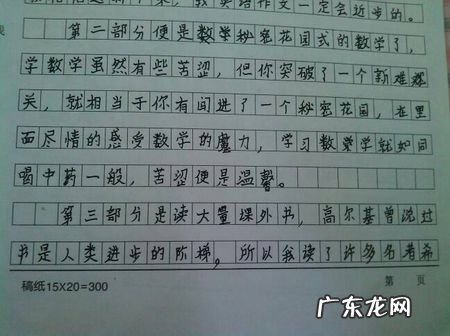 我英语作文一定会近步的。
第二部分便是数学秘密花园式的数学了,
学数学虽然有些苦涩,但你突破了一个新难
关,就相当于你有间进了一个秘密花园,在里
面尽情的感受数学的魔力,学习数学就如同
喝中药一般,苦涩便是温馨。
第三部分是读大量课外书,高尔基曾说过
书是人类进步的阶梯,所以我读了许多名着希
稿纸15X20=300
第 页
广东龙网